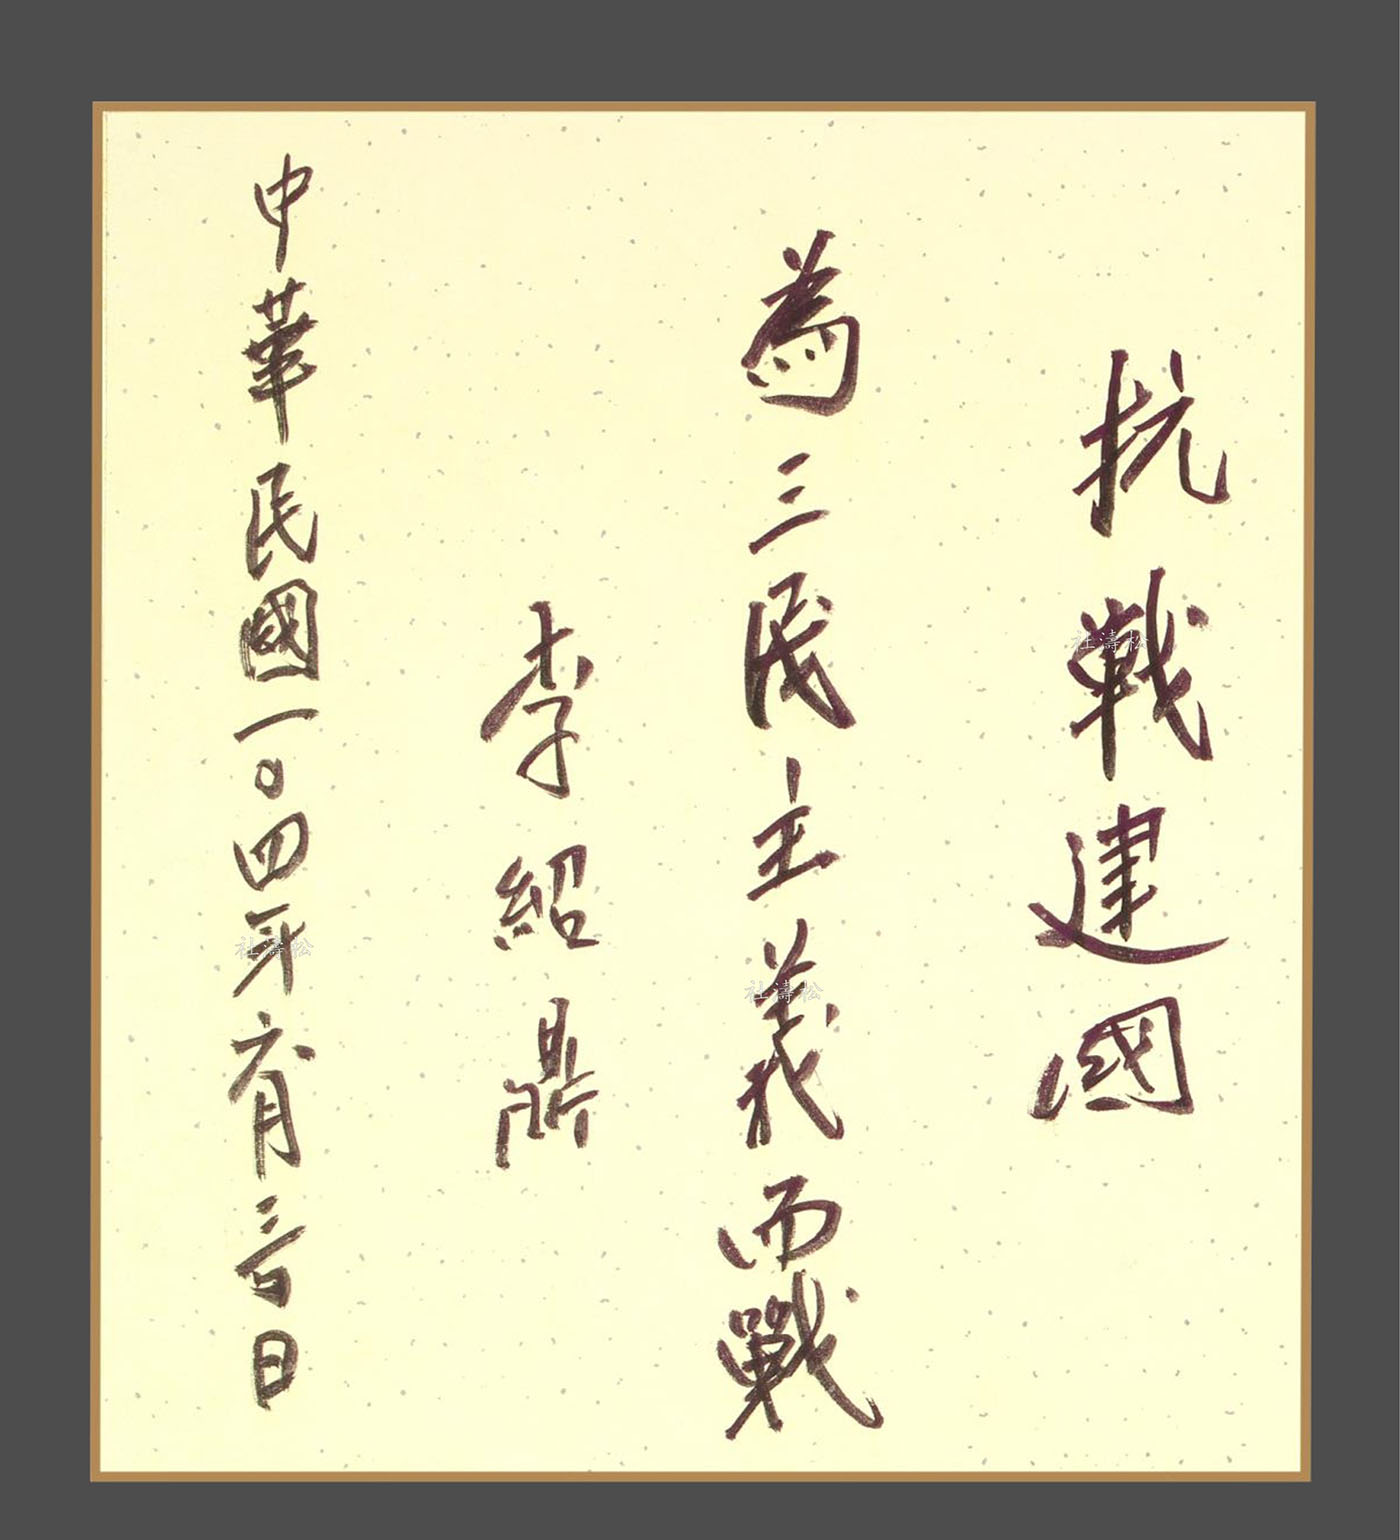 抗戰建國
為三民主義而戰
李紹鼎
中華民國一〇四年六月三日
松濤社
松濤社
松濤社